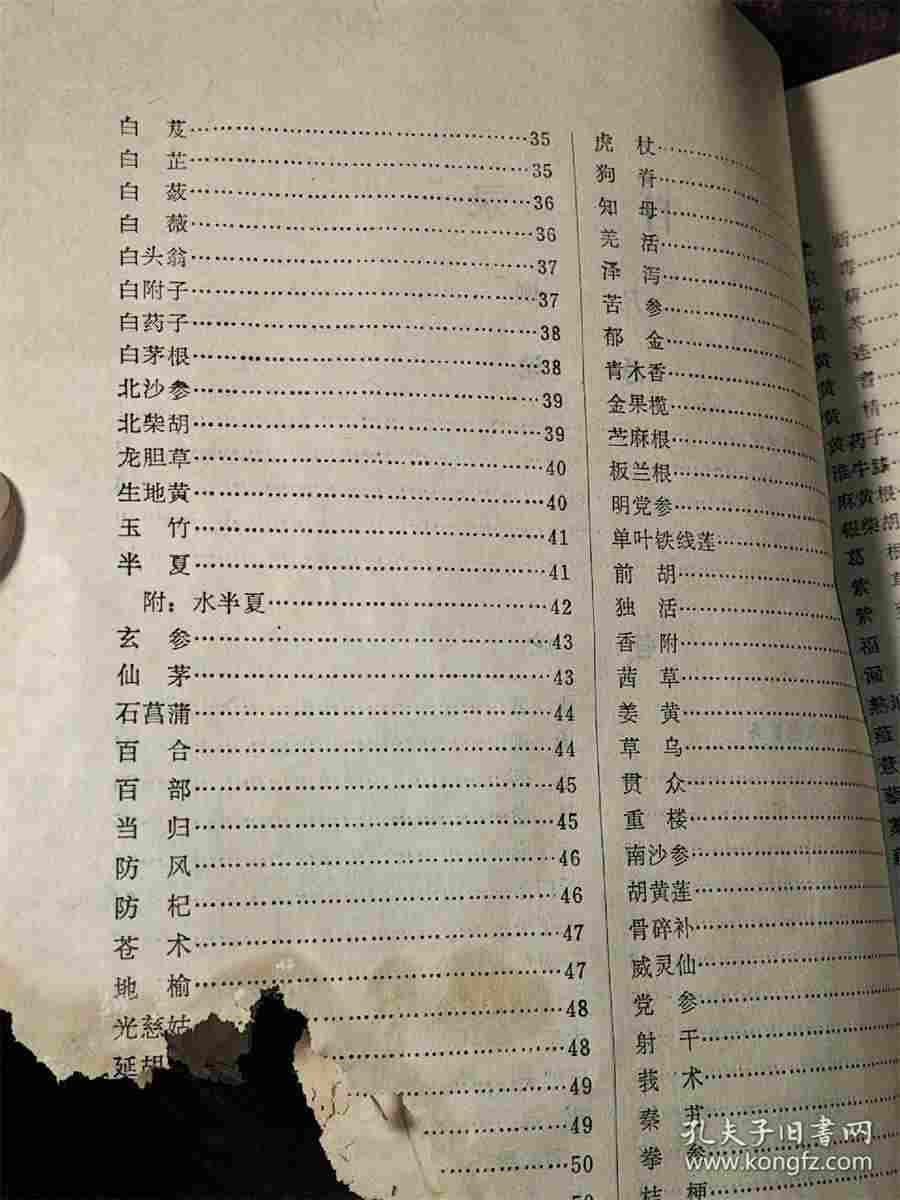 白 芨……35
白 芷……35
白 蔹……36
白 薇……36
白头翁……37
白附子……37
白药子……38
白茅根……38
北沙参……39
北柴胡……39
龙胆草……40
生地黄……40
玉 竹……41
半 夏……41
附：水半夏……42
玄 参……43
仙 茅……43
石菖蒲……44
百 合……44
百 部……45
当 归……45
防 风……46
防 杞……46
苍 术……47
地 榆……47
光慈姑……48
延胡……48
……49
……49
……50
虎 杖……
狗 脊……
知 母……
羌 活……
泽 泻……
苦 参……
郁 金……
青木香……
金果榄……
苎麻根……
板兰根……
明党参……
单叶铁线莲……
前 胡……
独 活……
香 附……
茜 草……
姜 黄……
草 乌……
贯 众……
重 楼……
南沙参……
胡黄莲……
骨碎补……
威灵仙……
党 参……
射 干……
莪 术……
秦 艽……
拳 参……
桔 梗……
断
毒
黄 连
黄
黄 精
黄药子
淮牛膝
麻黄根
银柴胡
葛 根
紫
紫
福
孔夫子旧书网
www.kongfz.com